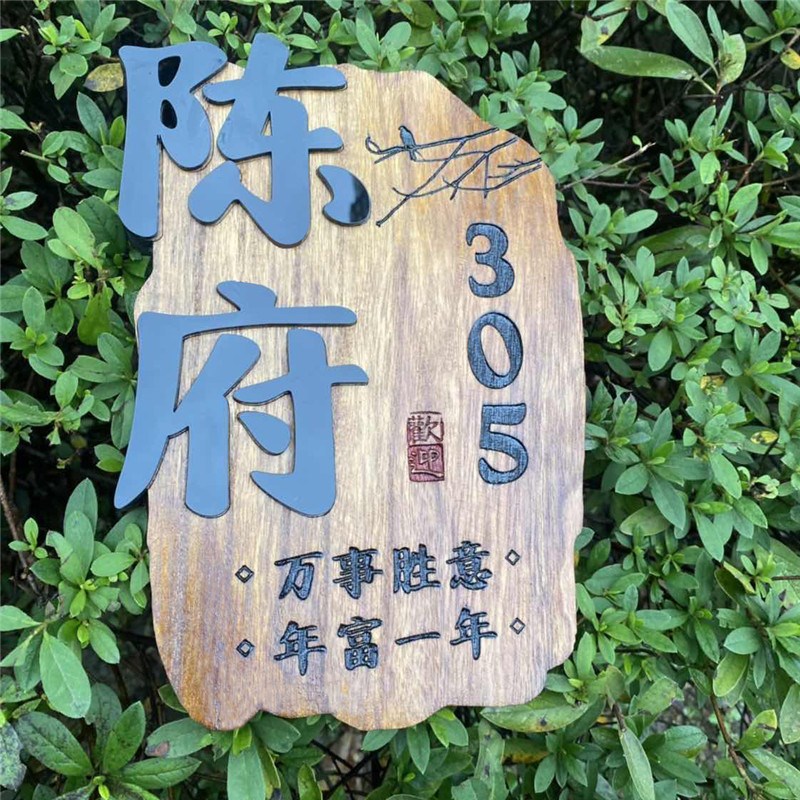 陈府
305
歡迎
万事胜意
年富一年